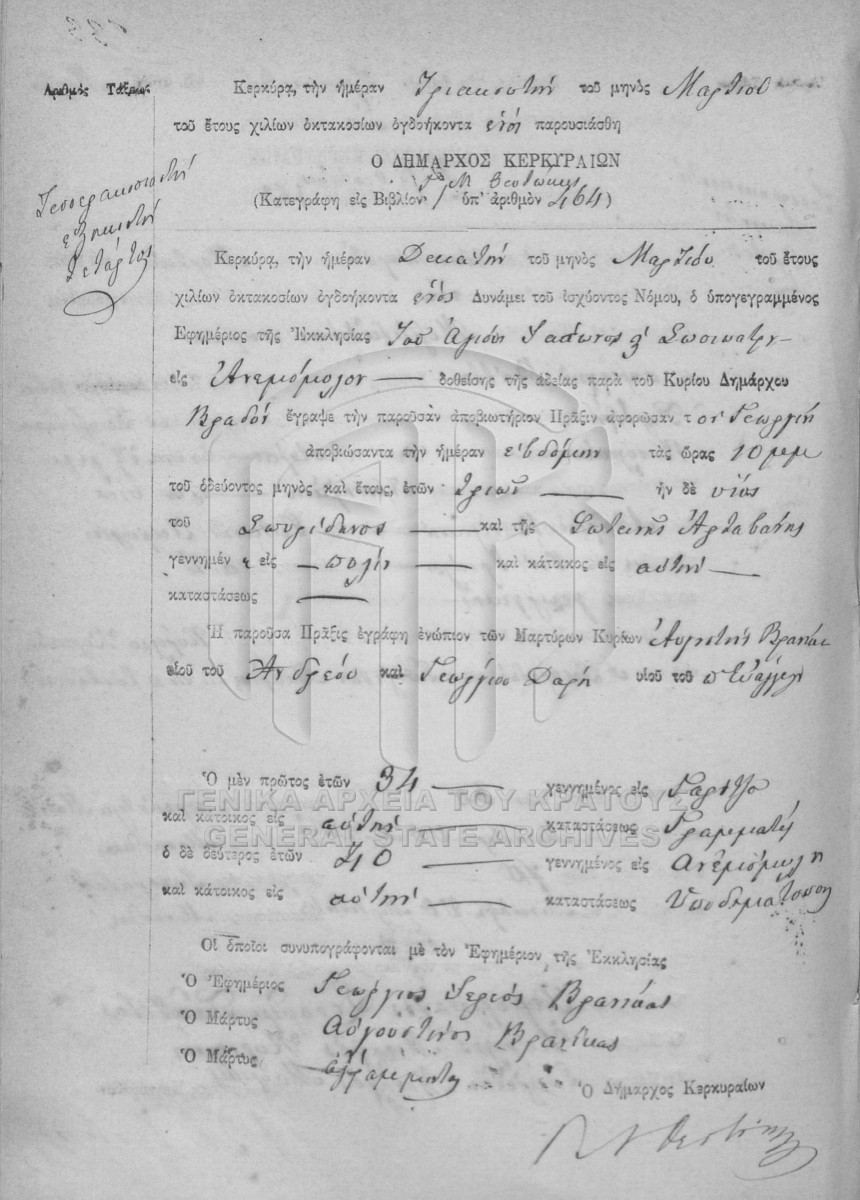 Ἀριθμὸς Τάξεως
Κερκύρα, τὴν ἡμέραν Τριακοστήν τοῦ μηνὸς Μαρτίου
τοῦ ἔτους χιλίων ὀκτακοσίων ὀγδοήκοντα ἑνός παρουσιάσθη
Ὁ ΔΗΜΑΡΧΟΣ ΚΕΡΚΥΡΑΙΩΝ
(Κατεγράφη εἰς Βιβλίον ὑπ' ἀριθμὸν 464)
Τετρακοσιοστή
ἑξηκοστή
Τετάρτος
Κερκύρα, τὴν ἡμέραν Δεκάτην τοῦ μηνὸς Μαρτίου τοῦ ἔτους
χιλίων ὀκτακοσίων ὀγδοήκοντα ἑνός Δυνάμει τοῦ ἰσχύοντος Νόμου, ὁ ὑπογεγραμμένος
Ἐφημέριος τῆς Ἐκκλησίας Τοῦ Ἁγίου Ἰάσωνος & Σωσιπάτρ
εἰς Ἀνεμόμολον δοθείσης τῆς ἀδείας παρὰ τοῦ Κυρίου Δημάρχου
ἔγραψε τὴν παροῦσαν ἀποβιωτήριον Πρᾶξιν ἀφορῶσαν τ ὸν Γεώργιν
ἀποβιώσαντα τὴν ἡμέραν ἑβδόμην τὰς ὥρας 10 μ.μ
τοῦ ὁδεύοντος μηνὸς καὶ ἔτους, ἐτῶν τριῶν ἦν δὲ υἱός
τοῦ Σπυρίδωνος καὶ τῆς Φωτεινῆς Ἀρταβάνης
γεννημέν εἰς πόλιν καὶ κάτοικος εἰς αὐτήν
καταστάσεως
Ἡ παροῦσα Πρᾶξις ἐγράφη ἐνώπιον τῶν Μαρτύρων Κυρίων Αὐγουστῆ Βρανίκα
υἱοῦ τοῦ Ἀνδρέου καὶ Γεωργίου Δαρή υἱοῦ τοῦ π Εὐάγγελ
Ὁ μὲν πρῶτος ἐτῶν 34 γεννημένος εἰς Γαρίτζα
καὶ κάτοικος εἰς αὐτήν καταστάσεως Γραμματεύς
ὁ δὲ δεύτερος ἐτῶν 40 γεννημένος εἰς Ἀνεμόμυλη
καὶ κάτοικος εἰς αὐτήν καταστάσεως Ὑποδηματοποιός
Οἱ ὁποῖοι συνυπογράφονται μὲ τὸν Ἐφημέριον τῆς Ἐκκλησίας
Ὁ Ἐφημέριος Γεώργιος Ἱερεύς Βρανίκας
Ὁ Μάρτυς Αὐγουστῖνος Βρανίκας
Ὁ Μάρτυς ἀγράμματος
Ὁ Δήμαρχος Κερκυραίων
ΓΕΝΙΚΑ ΑΡΧΕΙΑ ΤΟΥ ΚΡΑΤΟΥΣ
GENERAL STATE ARCHIVES